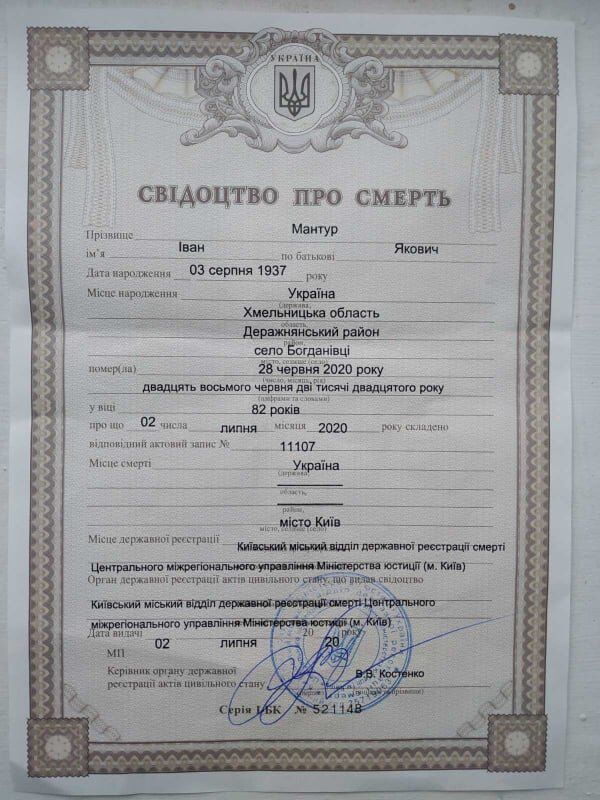 УКРАЇНА
СВІДОЦТВО ПРО СМЕРТЬ
Прізвище Мантур
ім'я Іван по батькові Якович
Дата народження 03 серпня 1937 року
Місце народження Україна
(держава,
Хмельницька область
область,
Деражнянський район
район,
село Богданівці
місто, селище (село)
помер(ла) 28 червня 2020 року
(число, місяць, рік)
двадцять восьмого червня дві тисячі двадцятого року
(цифрами та словами)
у віці 82 років
про що 02 числа липня місяця 2020 року складено
відповідний актовий запис № 11107
Місце смерті Україна
(держава,
область,
район,
місто Київ
місто, селище (село)
Місце державної реєстрації Київський міський відділ державної реєстрації смерті
Центрального міжрегіонального управління Міністерства юстиції (м. Київ)
Орган державної реєстрації актів цивільного стану, що видав свідоцтво
Київський міський відділ державної реєстрації смерті Центрального
міжрегіонального управління Міністерства юстиції (м. Київ)
Дата видачі 02 липня 2020 року
МП
Керівник органу державної
реєстрації актів цивільного стану В.В. Костенко
Серія І-БК № 521148